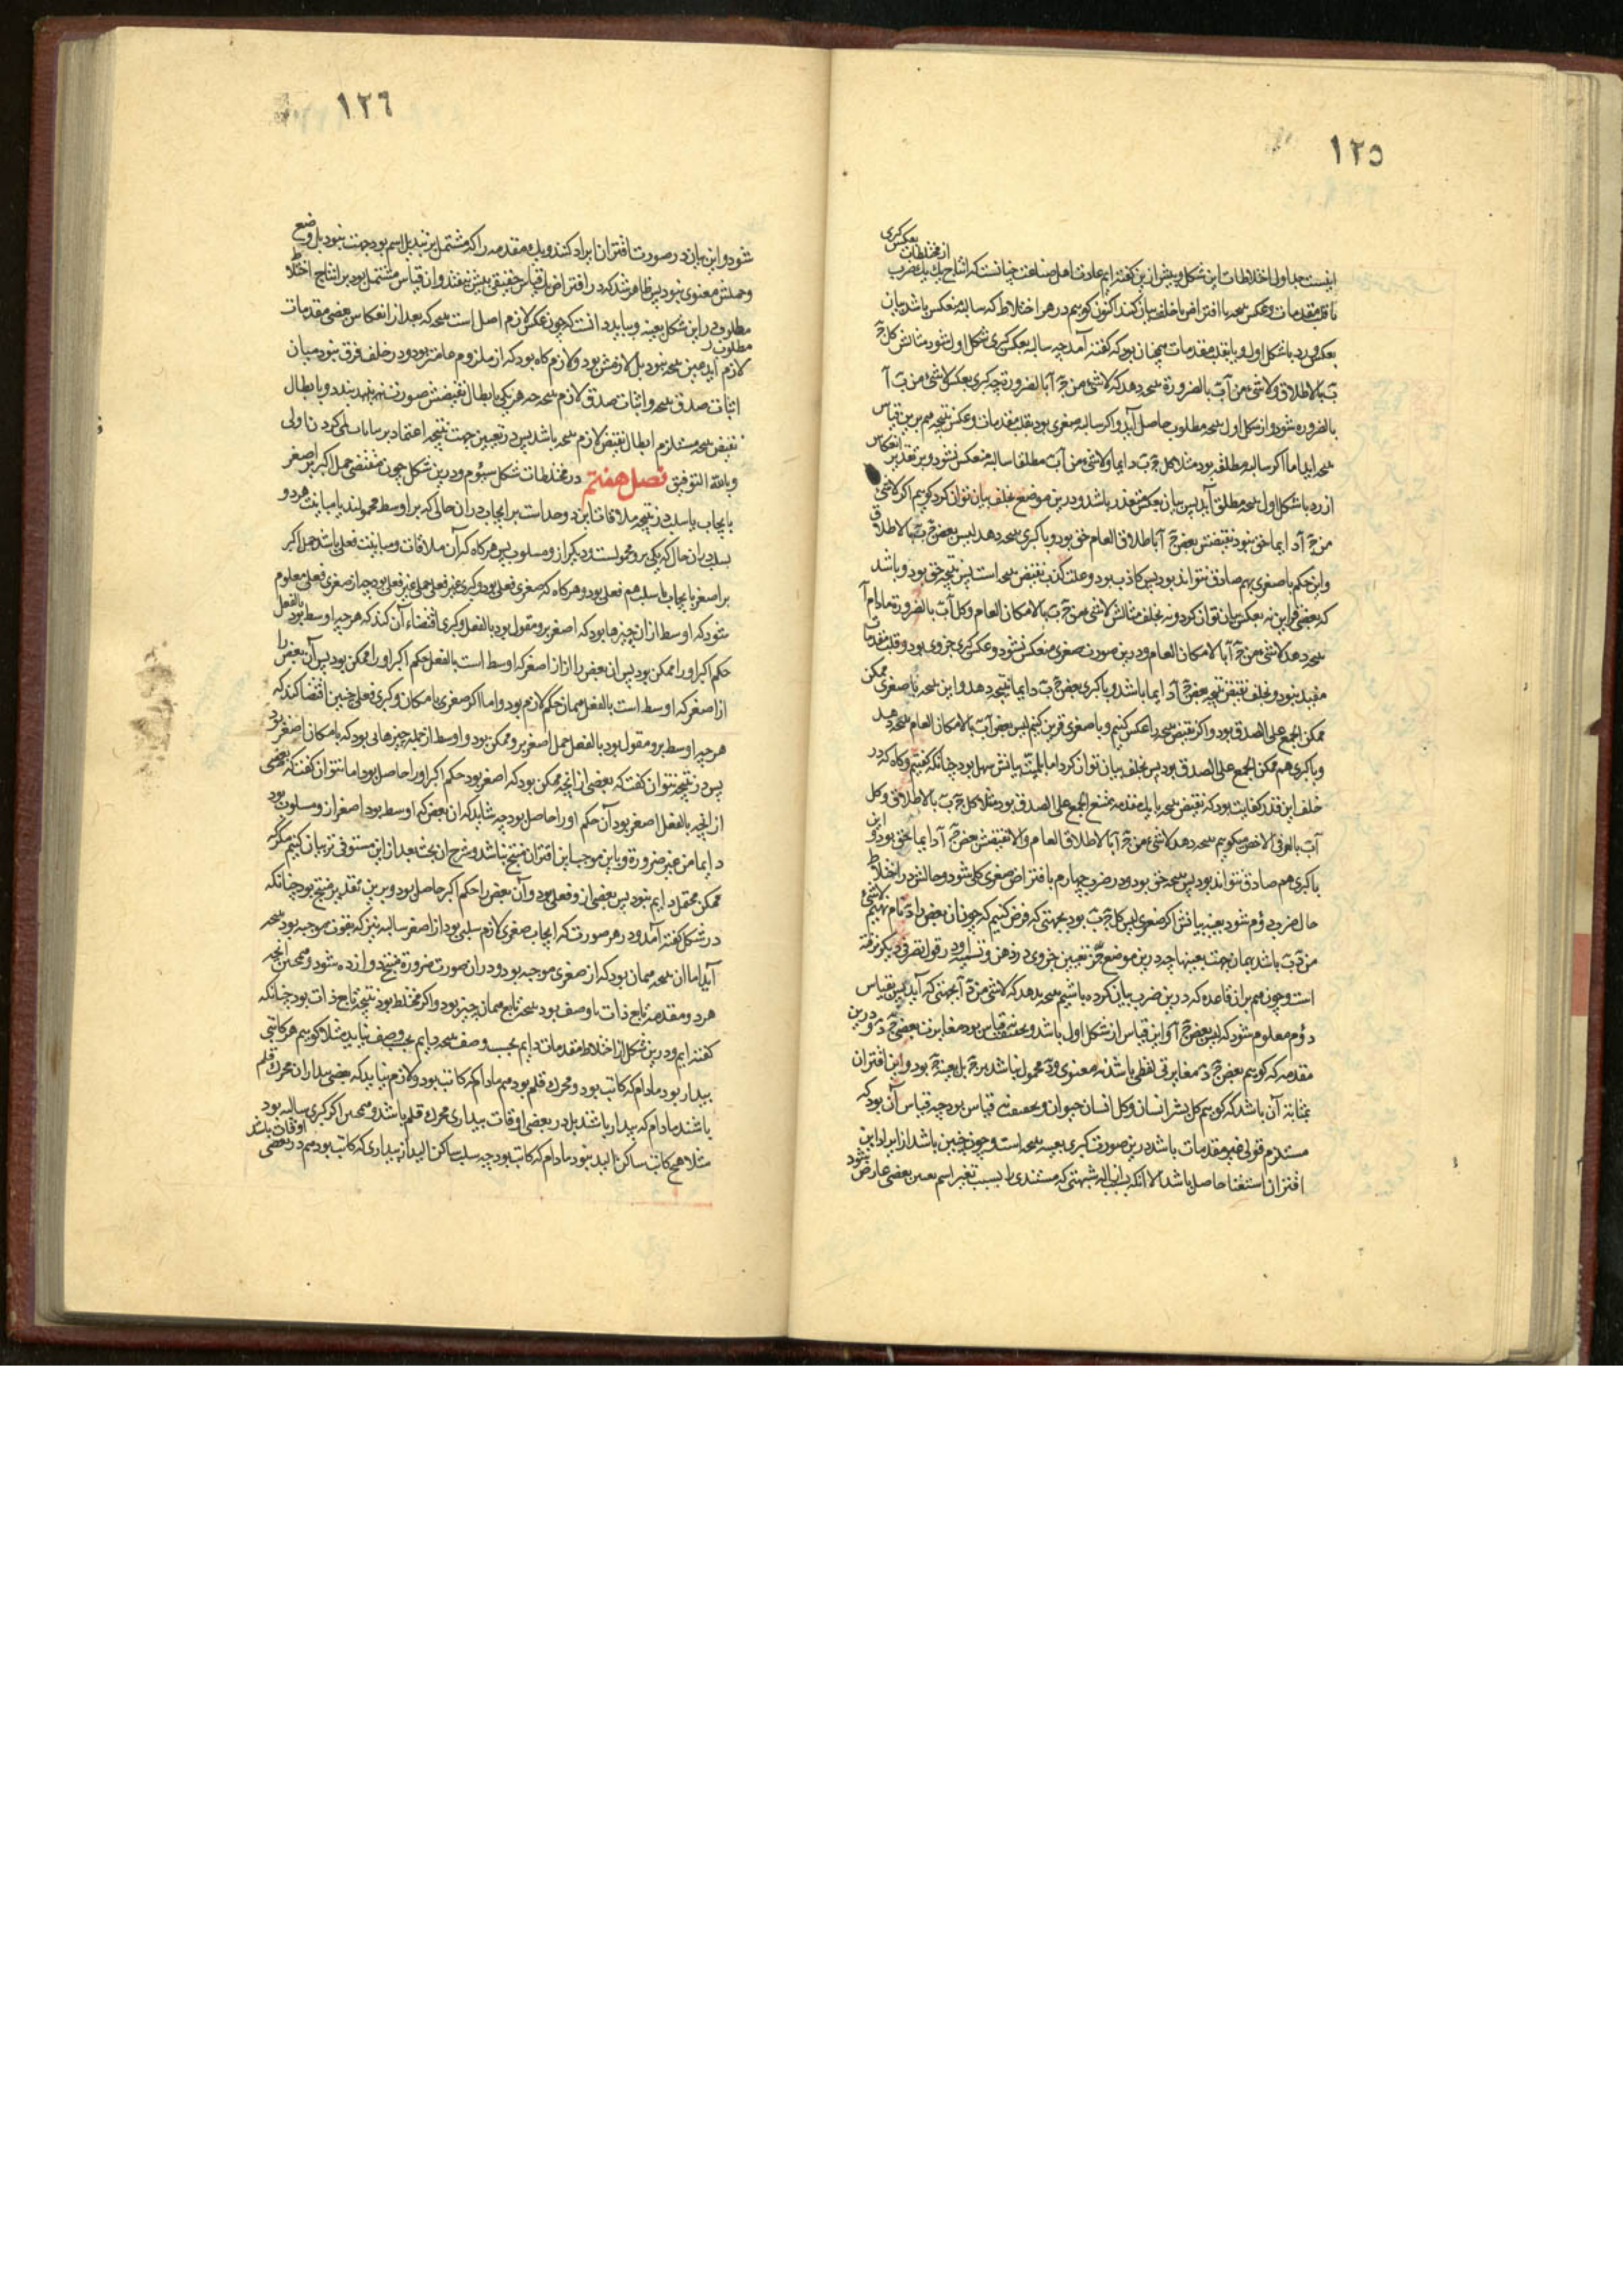 ١٢٥
از مختلطات بعکس کبری
اینست جداول اختلاطات این شکل و پیش ازین گفته ایم عادت اهل صناعت چنانست که انتاج یک یک ضرب
یا قلب مقدمات و عکس نتیجه یا افتراض یا خلف بیان کنند اکنون گوییم در هر اختلاط که سالبه منعکس باشد بیان
بعکس و رد با شکل اول و یا بقلب مقدمات همچنان بود که گفته آمد چه سالبه بعکس کبری شکل اول شود مثالش کل ج
ب بالاطلاق ولا شیء من آ ب بالضرورة نتیجه دهد که لا شیء من ج آ بالضرورة چه کبری بعکس لا شیء من ب آ
بالضروره شود و از شکل اول نتیجه مطلوب حاصل آید و اگر سالبه صغری بود بقلب مقدمات و عکس نتیجه هم برین قیاس
نتیجه آید اما اگر سالبه مطلقه بود مثلا کل ج ب دایما ولا شیء من آ ب مطلقا سالبه منعکس نشود و بر تقدیر انعکاس
از رد با شکل اول نتیجه مطلق آید پس بیان بعکس متعذر باشد و درین موضع بخلف بیان توان کرد گوییم اگر لا شیء
من ج آ دایما حق نبود نقیضش بعض ج آ باطلاق العام حق بود و با کبری نتیجه دهد لیس بعض ج ب بالاطلاق
و این حکم با صغری بهم صادق نتواند بود پس کاذب بود و علت کذب نقیض نتیجه است پس نتیجه حق بود و باشد
که بعضی قراین نه بعکس بیان توان کرد و نه بخلف مثالش لا شیء من ج ب بالامکان العام و کل آ ب بالضرورة مادام آ
نتیجه دهد لا شیء من ج آ بالامکان العام و درین صورت صغری منعکس نشود و عکس کبری جزوی بود و قلب مقدمات
مفید نبود و بخلف نقیض نتیجه بعض ج آ دایما باشد و با کبری بعض ج ب دایما نتیجه دهد و این نتیجه با صغری ممکن
ممکن الجمع علی الصدق بود و اگر نقیض نتیجه را عکس کنیم و با صغری قرین کنیم لیس بعض آ ب بالامکان العام نتیجه دهد
و با کبری هم ممکن الجمع علی الصدق بود پس بخلف بیان توان کرد اما بلمیت بیانش سهل بود چنانکه گفتیم و گاه که در
خلف این قدر کفایت بود که نقیض نتیجه با یک مقدمه ممتنع الجمع علی الصدق بود مثلا کل ج ب بالاطلاق و کل
آ ب بالعرفی الاخص میگوییم نتیجه دهد لا شیء من ج آ بالاطلاق العام والا نقیضش بعض ج آ دایما حق بود و این
با کبری هم صادق نتواند بود پس نتیجه حق بود و در ضرب چهارم با فتراض صغری کلی شود و حالش در اختلاط
حال ضرب دوم شود بعینه بیانش اگر صغری لیس کل ج ب بود بجهتی که فرض کنیم که چون آن بعض را د نام نهیم لا شیء
من د ب باشد بهمان جهت بعینها چه درین موضع جز تعیین جزوی در ذهن و تسمیه او در قول تصرفی دیگر نرفته
است و چون هم بران قاعده که درین ضرب بیان کرده باشیم نتیجه بدهد که لا شیء من د آ بجهتی که آید پس بقیاس
دوم معلوم شود که لیس بعض ج آ و این قیاس از شکل اول باشد و بحقیقت قیاس نبود چه مغایرت بعض ج و د درین
مقدمه که گوییم بعض ج د مغایرتی لفظی باشد نه معنوی و د محمول نباشد بر ج بل بعینه ج بود و این اقتران
بمثابه آن باشد که گوییم کل بشر انسان و کل انسان حیوان و بحقیقت نه قیاس بود چه قیاس آن بود که
مستلزم قولی غیر مقدمات باشد درین صورت کبری بعینه نتیجه است و چون چنین باشد از ایراد این
اقتران استغنا حاصل باشد الا آنکه برای ازاله شبهتی که مبتدی را بسبب تغیر اسم بعضی عارض شود
١٢٦
شود و این بیان در صورت اقتران ایراد کنند و یک مقدمه را که مشتمل بر تبدیل اسم بود جهت نبود بل وضع
و حملش معنوی نبود پس ظاهر شد که در افتراض یک قیاس حقیقی بیش نیفتد و آن قیاس مشتمل بود بر انتاج اختلاط
مطلوب در این شکل بعینه و بباید دانست که چون عکس لازم اصل است نتیجه که بعد از انعکاس بعضی مقدمات
لازم آید عین نتیجه مطلوب نبود بل لازمش بود و لازم گاه بود که از ملزوم عامتر بود و در خلف فرق نبود میان
اثبات صدق نتیجه و اثبات صدق لازم نتیجه چه هر یکی بابطال نقیضش صورت بندند و بابطال
نقیض نتیجه مستلزم ابطال نقیض لازم نتیجه باشد پس در تعیین جهت نتیجه اعتماد بر بیانات لمی کردن اولی
و بالله التوفیق فصل هفتم در مختلطات شکل سیوم و درین شکل چون مقتضی حمل اکبر بر اصغر
بایجاب یا سلب در نتیجه ملاقات این دو حد است بر ایجاب در آن حالی که بر اوسط محمولند یا مباینت هر دو
بسلب در ان حال که یکی برو محمولست و دیگر ازو مسلوب پس هر گاه که آن ملاقات و مباینت فعلی باشد حمل اکبر
بر اصغر بایجاب یا سلب هم فعلی بود و هر گاه که صغری فعلی بود و کبری غیر فعلی حمل غیر فعلی بود چه از صغری فعلی معلوم
شود که اوسط از ان چیزها بود که اصغر برو مقول بود بالفعل و کبری اقتضاء آن کند که هر چه اوسط بود بالفعل
حکم اکبر او را ممکن بود پس ان بعض را از اصغر که اوسط است بالفعل حکم اکبر او را ممکن بود پس آن بعض را
از اصغر که اوسط است بالفعل همان حکم لازم بود و اما اگر صغری بامکان و کبری فعلی چنین اقتضا کند که
هر چه اوسط برو مقول بود بالفعل حمل اصغر برو ممکن بود و اوسط از جمله چیزهایی بود که بامکان اصغر بود
پس در نتیجه نتوان گفت که بعضی از آنچه ممکن بود که اصغر بود حکم اکبر او را حاصل بود اما نتوان گفت که بعضی
از آنچه بالفعل اصغر بود آن حکم او را حاصل بود چه شاید که ان بعض که اوسط بود اصغر ازو مسلوب بود
دایما من غیر ضرورة و باین موجب این اقتران منتج نباشد و شرح ان بحث بعد از این مستوفی تر بیان کنیم مگر که
ممکن محتمل دایم نبود پس بعضی از و فعلی بود و آن بعض را حکم اکبر حاصل بود و برین تقدیر منتج بود چنانکه
در شکل گفته آمد و در هر صورت که ایجاب صغری لازم سلبی بود از اصغر سالبه نیز که بقوت موجبه بود نتیجه
آید اما ان نتیجه همان بود که از صغری موجبه بود و در ان صورت ضروب منتج دوازده شود و همچنین آنچه
هر دو مقدمه تابع ذات یا وصف بود نتیجه تابع همان چیز بود و اگر مختلط بود نتیجه تابع ذات بود چنانکه
گفته ایم و درین شکل از اختلاط مقدمات دایم بحسب وصف نتیجه دایم بحسب وصف نیاید مثلا گوییم هر کاتبی
بیدار بود مادام که کاتب بود و محرک قلم بود هم مادام که کاتب بود و لازم نیاید که بعضی بیداران محرک قلم
باشند مادام که بیدار باشند بل در بعضی اوقات بیداری محرک قلم باشد و همچنین اگر کبری سالبه بود
مثلا هیچ کاتب ساکن الید نبود مادام که کاتب بود چه سلب ساکن الید از بیداری که کاتب بود هم در بعضی اوقات باشد